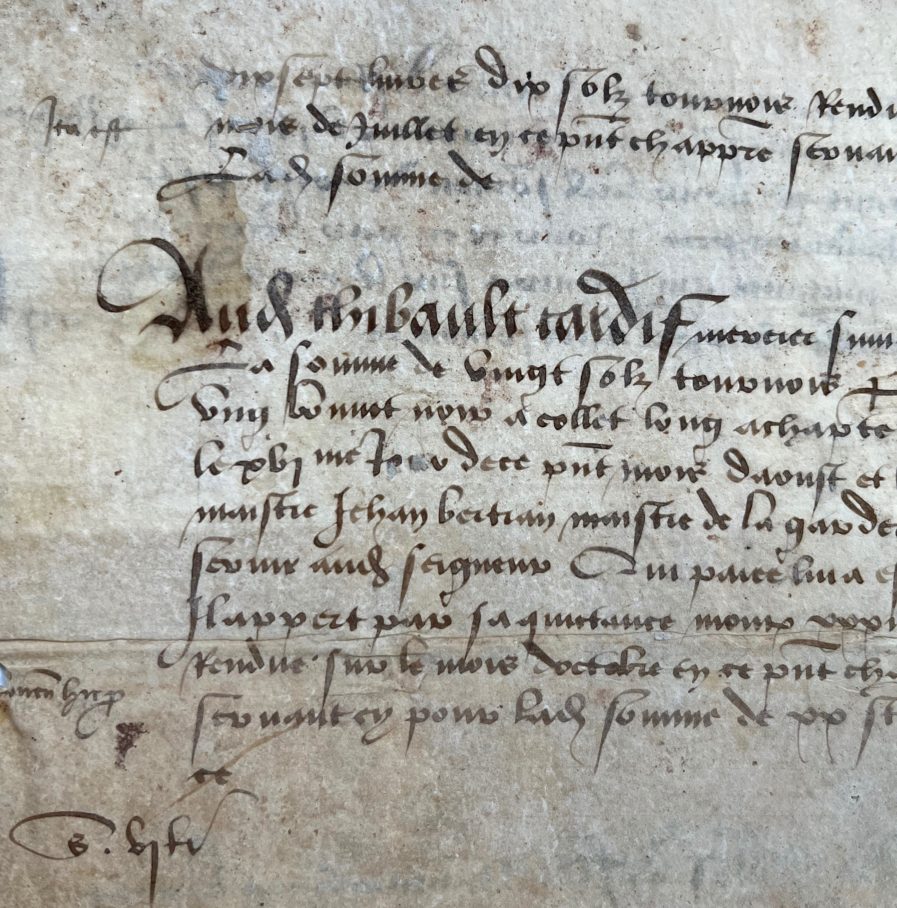 dixsept livres dix solz tournois Rendu
Ita est
mois de Juillet en ce pnt chappre servan
Lad somme de
Aud thibault tardif mercier suiu
La somme de vingt solz tournois P
Ung bonnet noir a collet long achapte
le xvj me Jour de ce pnt mois daoust et
maistre Jehan bertran maistre de la garde
servir aud seigneur Qui paiee luy a es
Il appert par sa quictance
Rendue sur le mois doctobre en ce pnt cha
servant cy pour lad somme de xx s t
ce